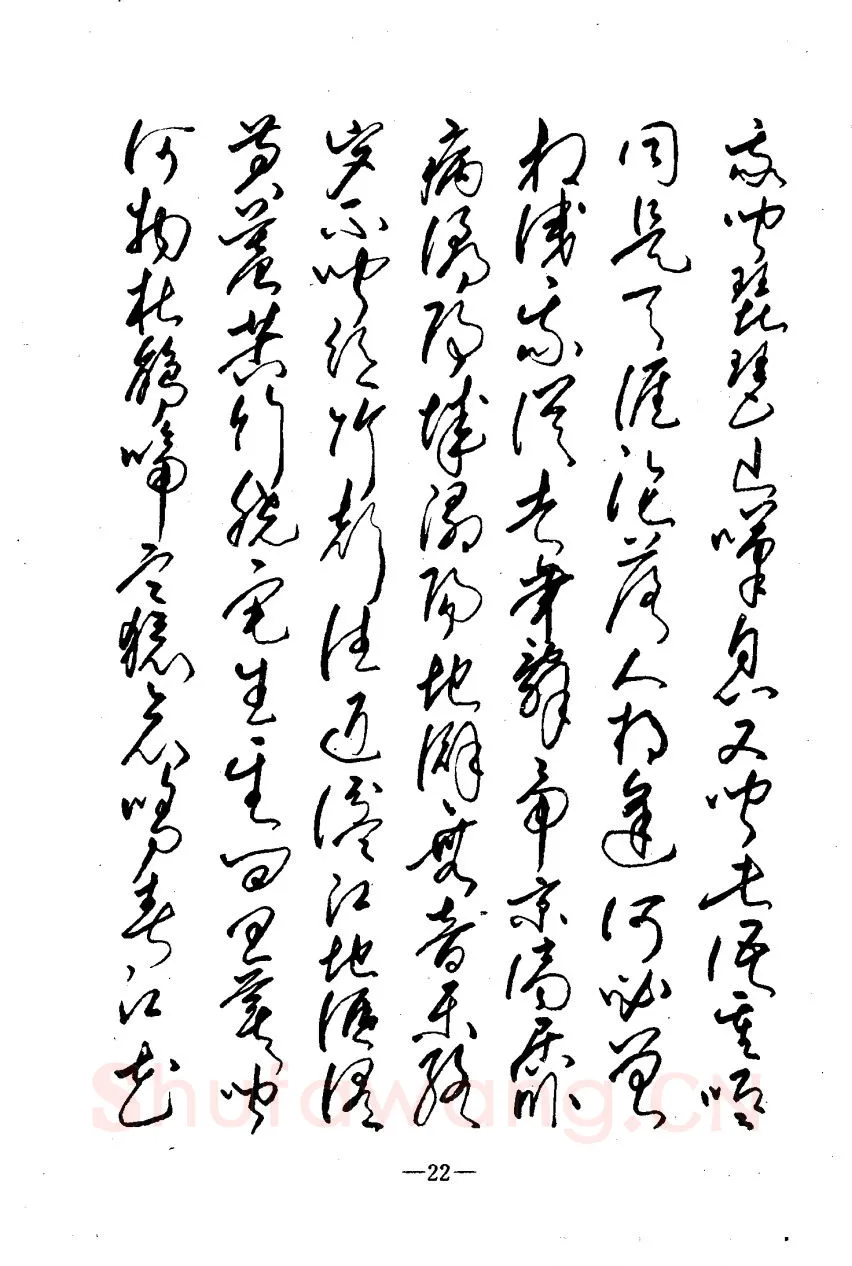 我闻琵琶已叹息又闻此语重唧唧
同是天涯沦落人相逢何必曾
相识我从去年辞帝京谪居卧
病浔阳城浔阳地僻无音乐终
岁不闻丝竹声住近湓江地低湿
黄芦苦竹绕宅生其间旦暮闻
何物杜鹃啼血猿哀鸣春江花
—22—
Shufawang.CN